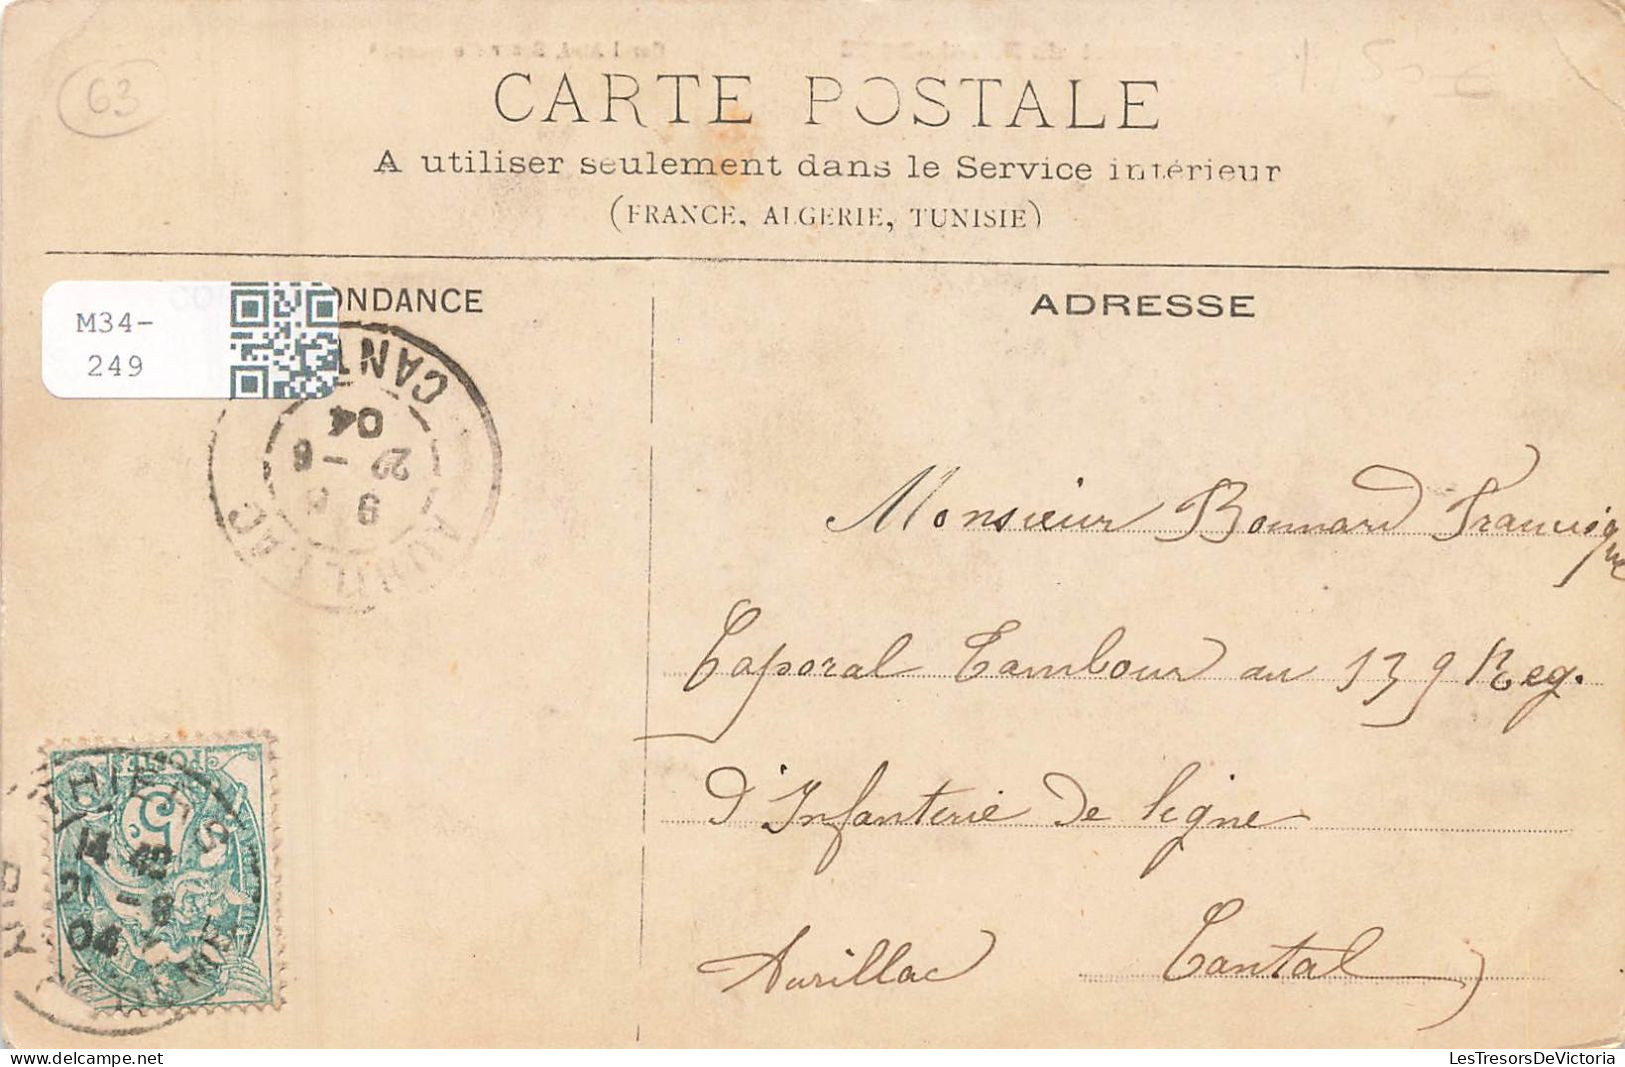 63
CARTE POSTALE
A utiliser seulement dans le Service intérieur
(FRANCE, ALGERIE, TUNISIE)
M34-
249
ONDANCE
ADRESSE
CANT
04
22 - 6
9
AURILLAC
Monsieur Bonnard Francisque
Caporal Tambour au 139 Reg.
d'Infanterie de ligne
Aurillac Cantal
POSTES
5
THIERS
14 45
21 - 6
04
LesTresorsDeVictoria
https://www.delcampe.net